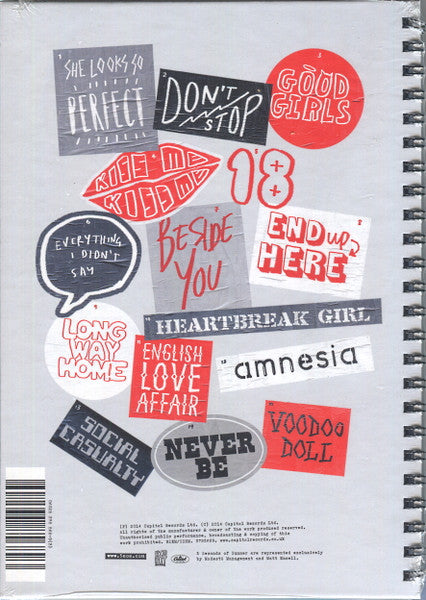 1
SHE LOOKS SO
PERFECT
2
DON'T
STOP
3
GOOD
GIRLS
4
KISS ME
KISS ME
5
18
6
EVERYTHING
I DIDN'T
SAY
7
BESIDE
YOU
8
END up
HERE
9
LONG
WAY
HOME
10
HEARTBREAK GIRL
11
ENGLISH
LOVE
AFFAIR
12
amnesia
13
SOCIAL
CASUALTY
14
NEVER
BE
15
VOODOO
DOLL
(P) 2014 Capitol Records Ltd. (C) 2014 Capitol Records Ltd.
All rights of the manufacturer & owner of the work produced reserved.
Unauthorised public performance, broadcasting & copying of this
work prohibited. www.capitolrecords.co.uk
www.5sos.com
5 Seconds of Summer are represented exclusively
by Modest! Management and Matt Emsell.